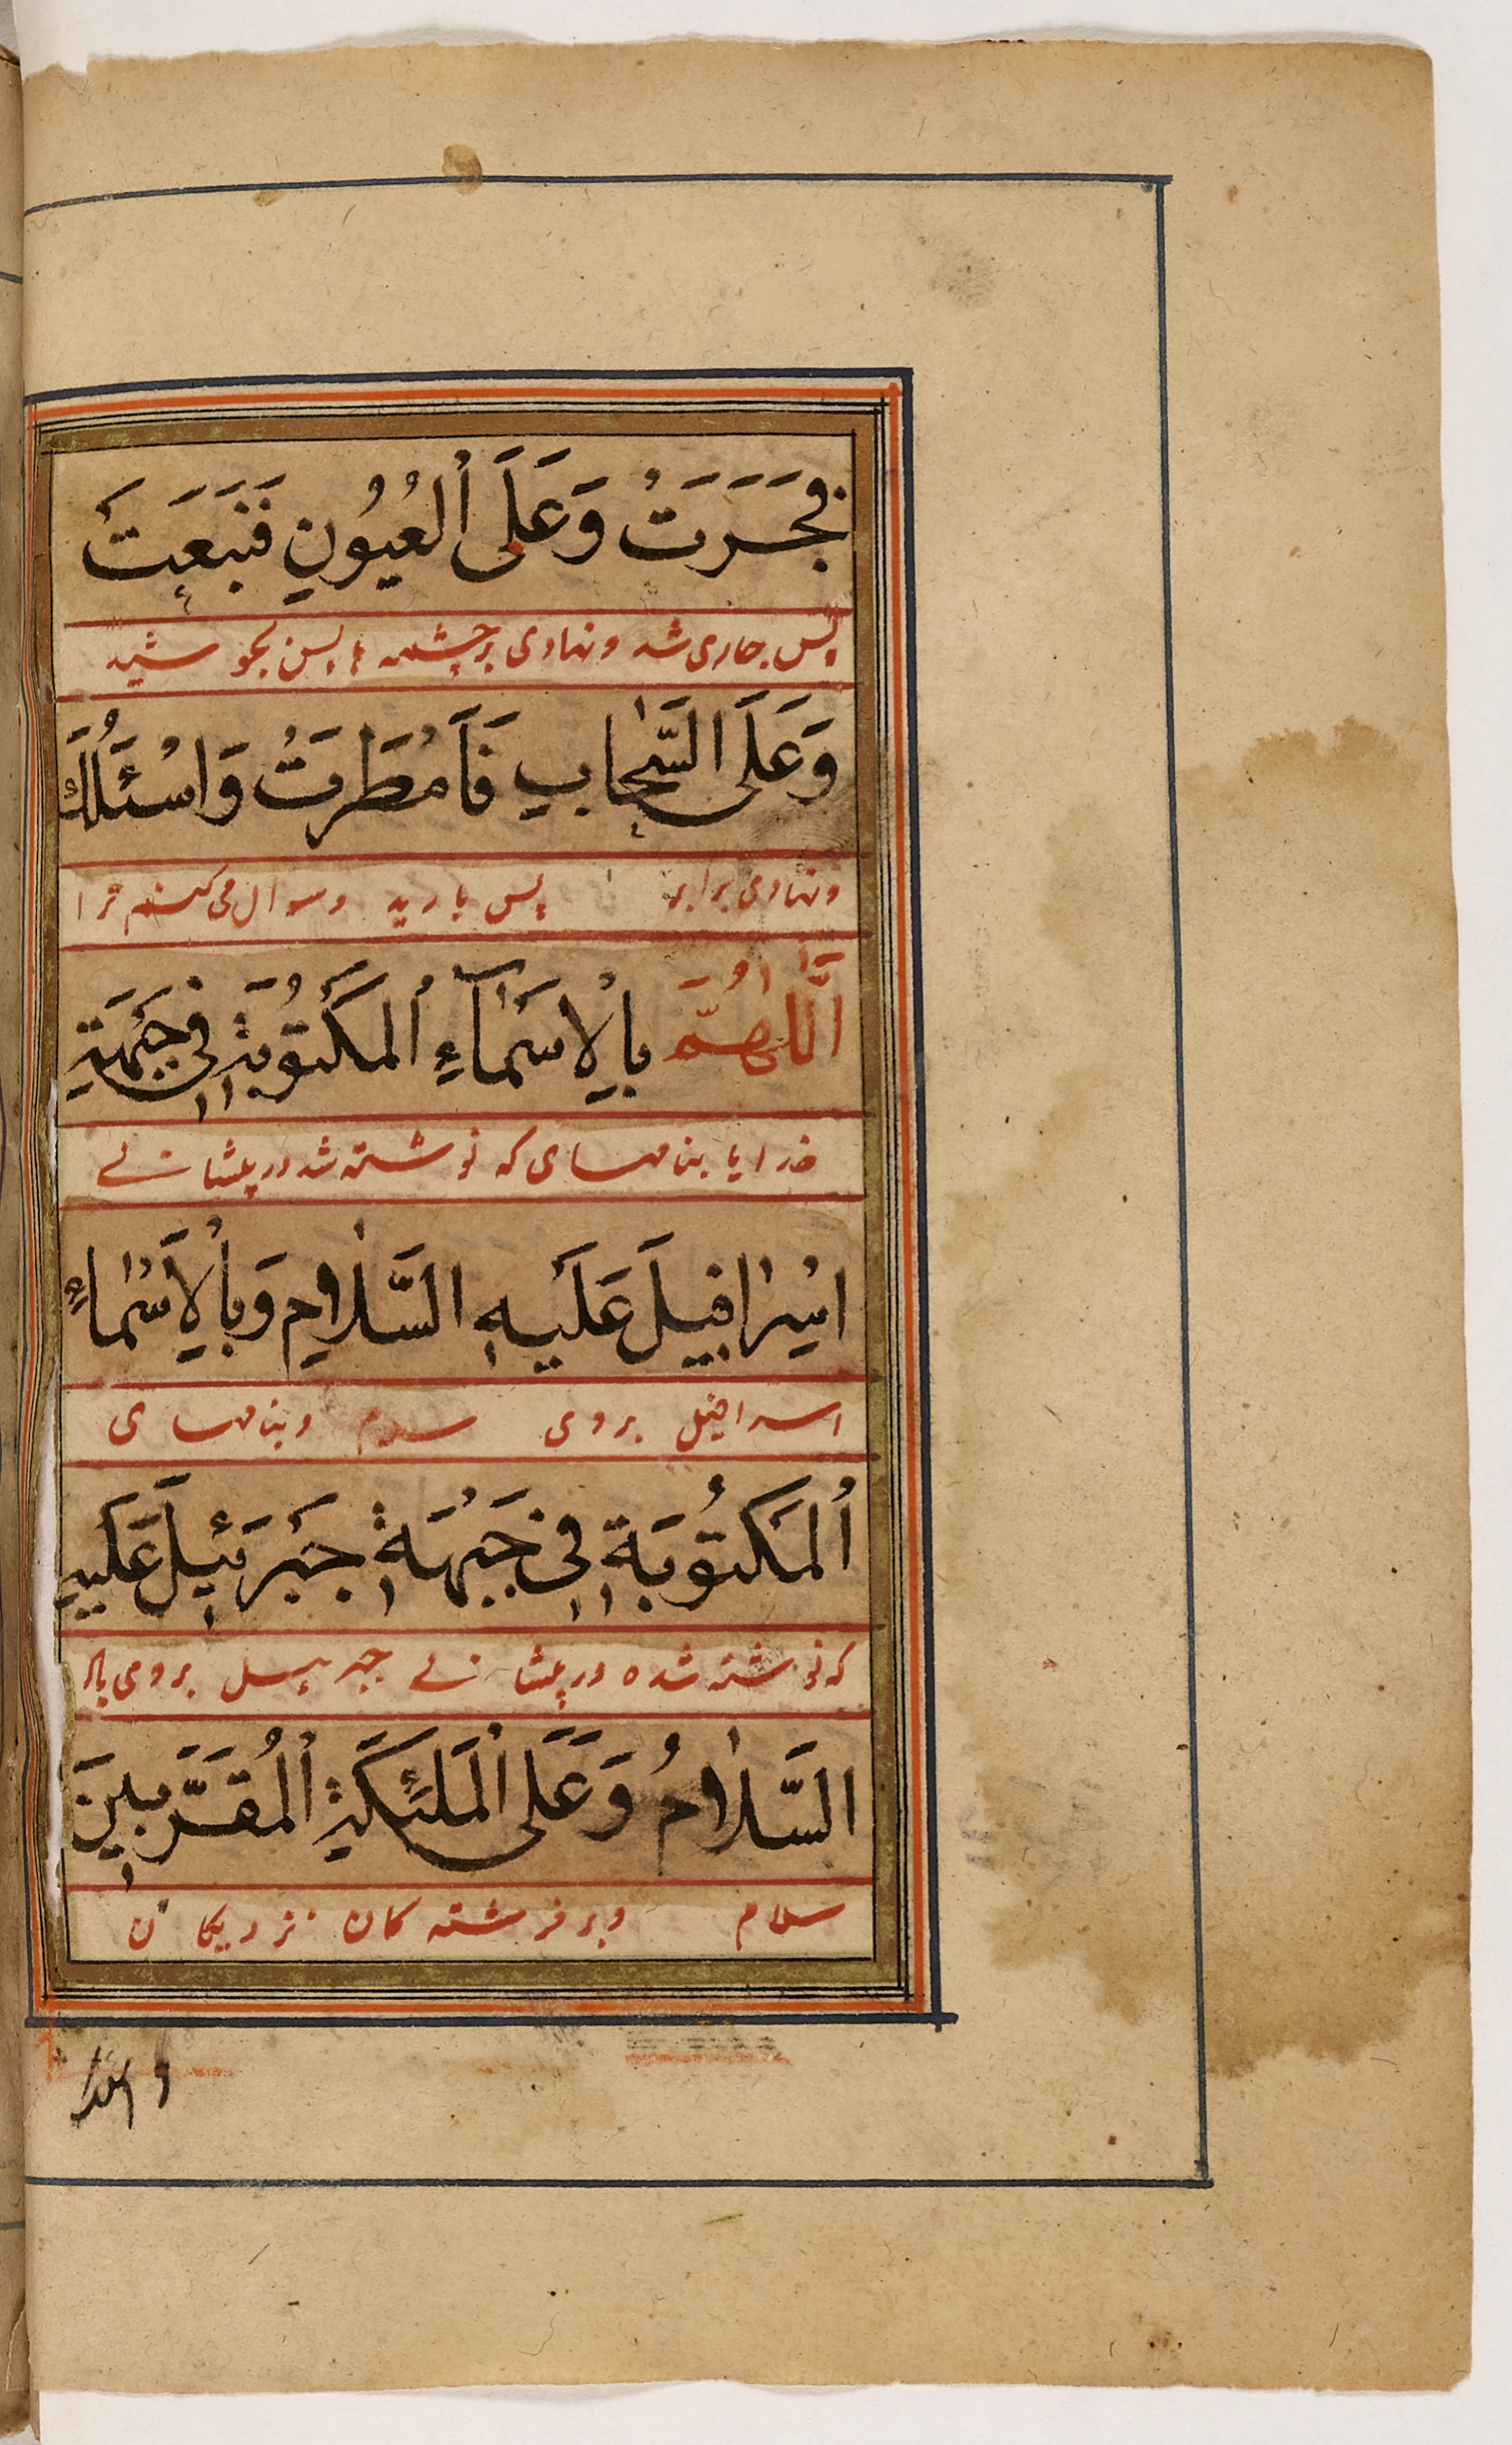 فَجَرَتْ وَعَلَى ٱلْعُيُونِ فَنَبَعَتْ
پس جاری شد و نهادی بر چشمه ها پس بجوشید
وَعَلَى السَّحَابِ فَاَمْطَرَتْ وَاَسْئَلُكَ
و نهادی بر ابر پس بارید و سوال می کنم ترا
اَللّٰهُمَّ بِالْاَسْمَآءِ ٱلْمَكْتُوبَةِ فِى جَبْهَةِ
خدرایا بنامهای که نوشته شد در پیشانے
اِسْرَافِيلَ عَلَيْهِ السَّلَامُ وَبِالْاَسْمَاءِ
اسرافیل بروی سلام و بنامهای
ٱلْمَكْتُوبَةِ فِى جَبْهَةِ جَبْرَئِيلَ عَلَيْهِ
که نوشته شده در پیشانے جبرئیل بروی باد
السَّلَامُ وَعَلَى ٱلْمَلٰئِكَةِ ٱلْمُقَرَّبِينَ
سلام و بر فرشته کان نزدیکان